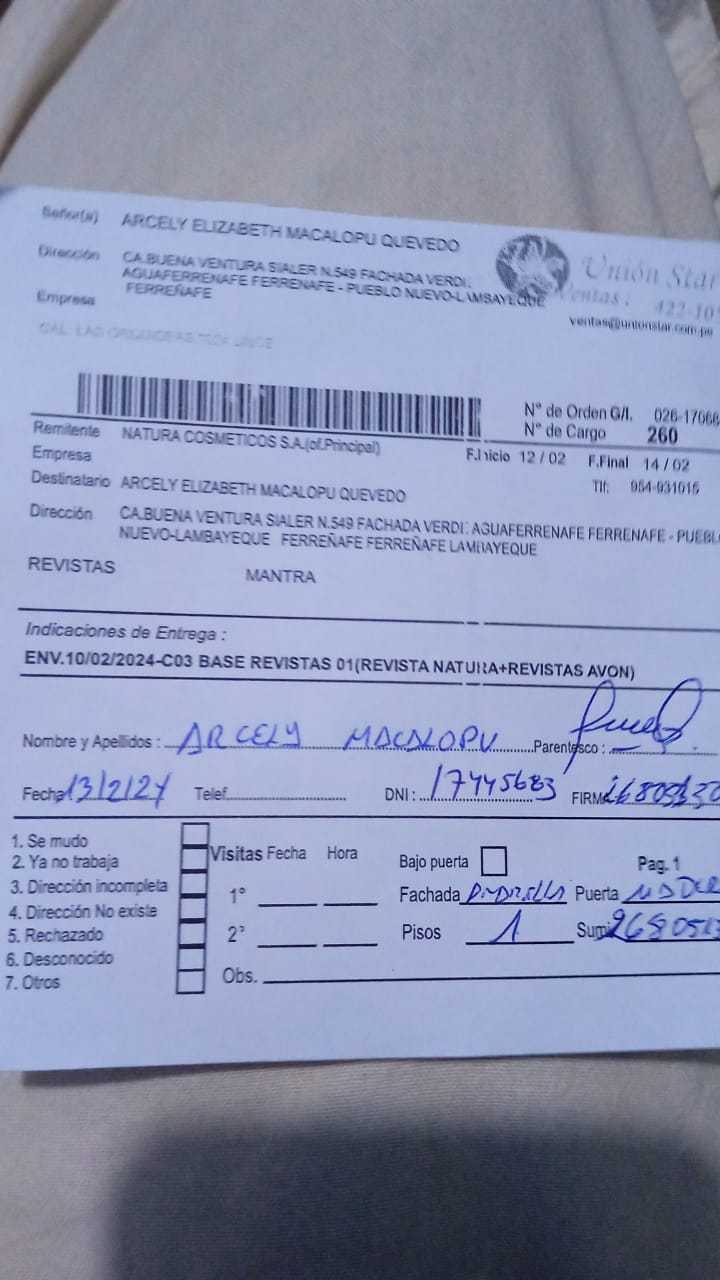 Señor(a) ARCELY ELIZABETH MACALOPU QUEVEDO
Dirección CA.BUENA VENTURA SIALER N.549 FACHADA VERDE
AGUAFERRENAFE FERRENAFE - PUEBLO NUEVO-LAMBAYEQUE
FERREÑAFE
Empresa
Unión Star
Ventas: 422-10
ventas@unionstar.com.pe
N° de Orden G/I. 026-17068
N° de Cargo 260
Remitente NATURA COSMETICOS S.A.(of.Principal)
Empresa
F.Inicio 12 / 02 F.Final 14 / 02
Tlf: 954-931015
Destinatario ARCELY ELIZABETH MACALOPU QUEVEDO
Dirección CA.BUENA VENTURA SIALER N.549 FACHADA VERDE AGUAFERRENAFE FERRENAFE - PUEBLO
NUEVO-LAMBAYEQUE FERREÑAFE FERREÑAFE LAMBAYEQUE
REVISTAS MANTRA
Indicaciones de Entrega :
ENV.10/02/2024-C03 BASE REVISTAS 01(REVISTA NATURA+REVISTAS AVON)
Nombre y Apellidos : ARCELY MACALOPU Parentesco :
Fecha 13/2/24 Telef. DNI : 17445683 FIRMA
1. Se mudo
2. Ya no trabaja
3. Dirección incompleta
4. Dirección No existe
5. Rechazado
6. Desconocido
7. Otros
Visitas Fecha Hora
1°
2°
Obs.
Bajo puerta Pag. 1
Fachada Puerta
Pisos 1 Sumi